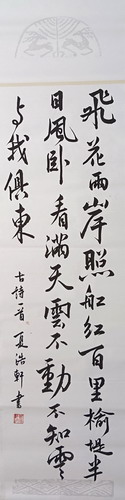 飛花兩岸照船紅百里榆堤半
日風卧看滿天雲不動不知雲
与我俱東
古诗一首夏浩軒書